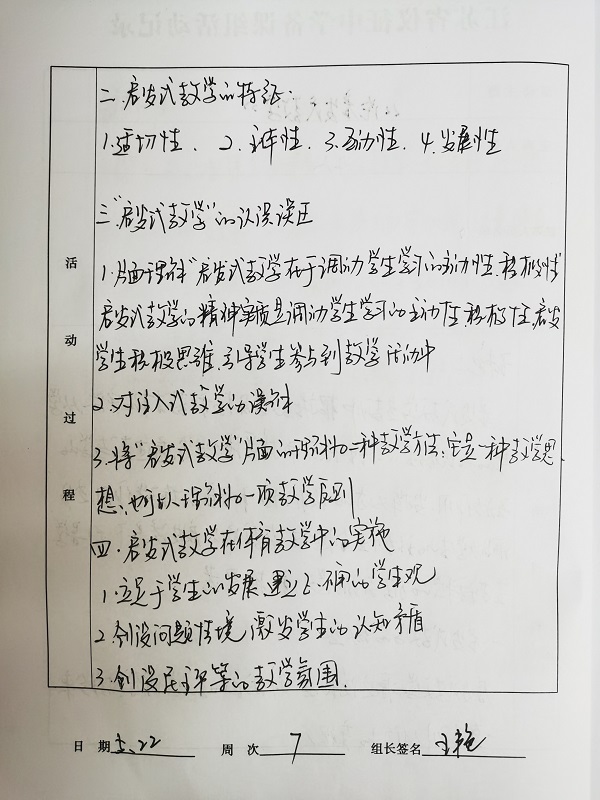 二、启发式教学的特征：
1.适切性、 2.主体性、3.互动性、4.发展性
三“启发式教学”的认识误区
1.片面理解“启发式教学在于调动学生学习的主动性、积极性
启发式教学的精神实质是调动学生学习的主动性积极性、启发
学生积极思维、引导学生参与到教学活动中
2.对注入式教学的误解
3.将“启发式教学”片面的理解为一种教学方法；它是一种教学思
想、也可以理解为一项教学原则
四、启发式教学在体育教学中的实施
1.立足于学生的发展 建立正确的学生观
2.创设问题情境，激发学生的认知矛盾
3.创设民主平等的教学氛围.
活动过程
日 期 5.22 周 次 7 组长签名 王艳